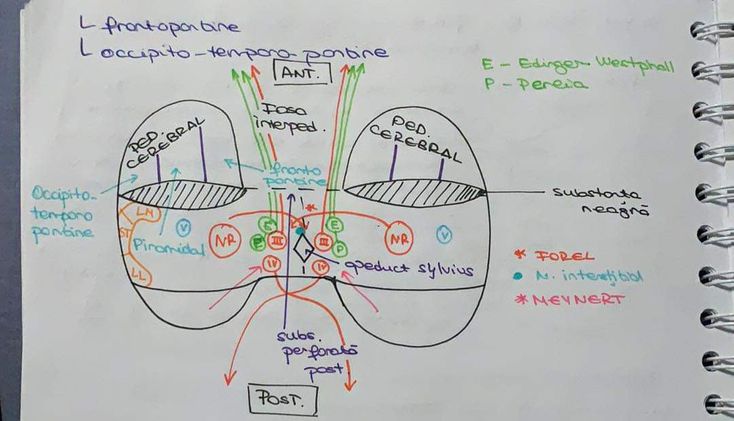 L frontopontine
L occipito-temporo-pontine
E - Edinger Westphall
P - Pereia
ANT.
Fosa
interped.
PED.
CEREBRAL
PED.
CEREBRAL
fronto
pontine
Occipito-
temporo
pontine
substanta
neagră
LM
ST
LL
Piramidal
V
NR
E
P
III
IV
*
E
P
III
IV
NR
V
apeduct sylvius
* FOREL
N. interstitial
* MEYNERT
subs.
perforată
post
POST.